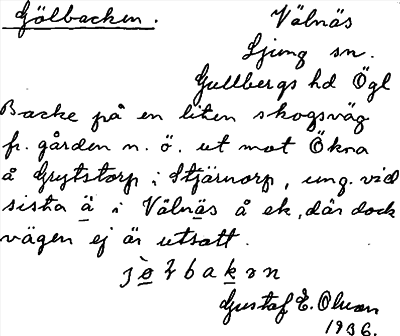 Gölbacken.
Välnäs
Ljung sn.
Gullbergs hd Ögl
Backe på en liten skogsväg
fr. gården n. ö. ut mot Ökna
å Grytstorp i Stjärnorp, ung. vid
sista ä i Välnäs å ek, där dock
vägen ej är utsatt.
Gustaf E. Olson
1936.